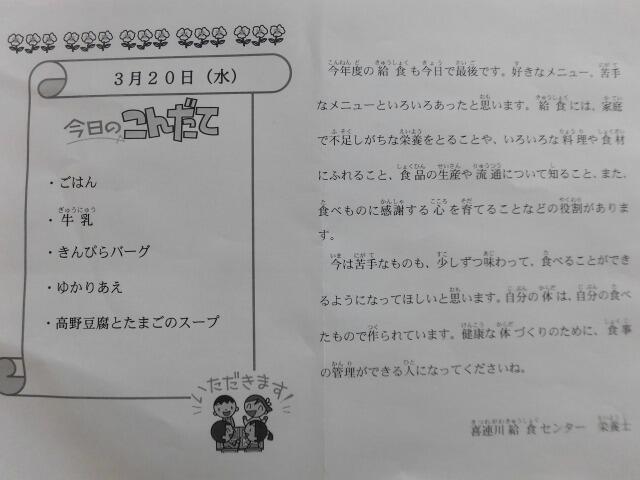 3月20日（水）
今日のこんだて
・ごはん
・牛乳
ぎゅうにゅう
・きんぴらバーグ
・ゆかりあえ
・高野豆腐とたまごのスープ
いただきます!
今年度の給食も今日で最後です。好きなメニュー、苦手
なメニューといろいろあったと思います。給食には、家庭
で不足しがちな栄養をとることや、いろいろな料理や食材
にふれること、食品の生産や流通について知ること、また、
食べものに感謝する心を育てることなどの役割がありま
す。
今は苦手なものも、少しずつ味わって、食べることができ
るようになってほしいと思います。自分の体は、自分の食べ
たもので作られています。健康な体づくりのために、食事
の管理ができる人になってくださいね。
喜連川給食センター　栄養士